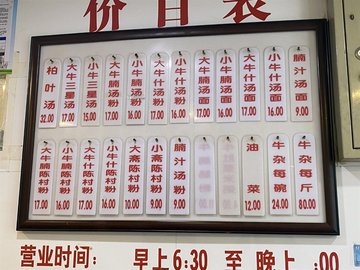 价目表
柏叶汤 32.00
大牛三星汤 17.00
小牛三星汤 15.00
大牛腩汤粉 17.00
小牛腩汤粉 16.00
大牛什汤粉 17.00
小牛什汤粉 16.00
大牛腩汤面 17.00
小牛腩汤面 16.00
大牛什汤面 17.00
小牛什汤面 16.00
腩汁汤面 9.00
大牛腩陈村粉 17.00
小牛腩陈村粉 16.00
大牛什陈村粉 17.00
小牛什陈村粉 16.00
大斋陈村粉 10.00
小斋陈村粉 9.00
腩汁汤粉 9.00
油菜 12.00
牛杂每碗 24.00
牛杂每斤 80.00
营业时间: 早上6:30 至 晚上 :00